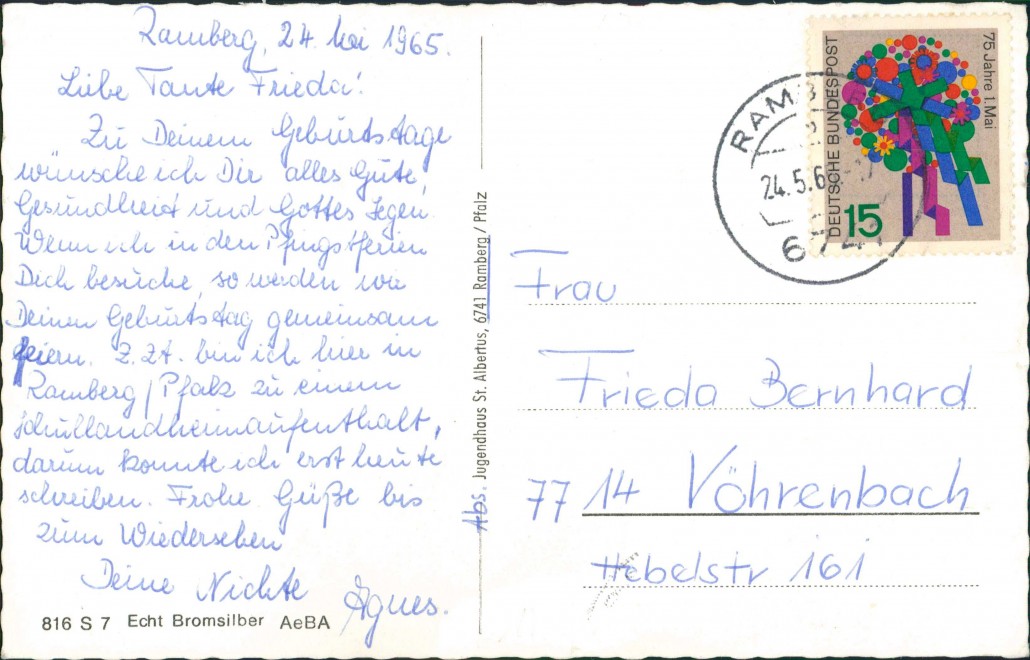 Ramberg, 24. Mai 1965.
Liebe Tante Frieda!
Zu Deinem Geburtstage
wünsche ich Dir alles Gute,
Gesundheit und Gottes Segen.
Wenn ich in den Pfingstferien
Dich besuche, so werden wir
Deinen Geburtstag gemeinsam
feiern. Z. Zt. bin ich hier in
Ramberg/Pfalz zu einem
Schullandheimaufenthalt,
darum konnte ich erst heute
schreiben. Frohe Güße bis
zum Wiedersehen
Deine Nichte
Agnes.
816 S 7 Echt Bromsilber AeBA
Abs. Jugendhaus St. Albertus, 6741 Ramberg / Pfalz
75 Jahre 1. Mai
DEUTSCHE BUNDESPOST
15
24.5.6
Frau
Frieda Bernhard
7714 Vöhrenbach
Hebelstr 161